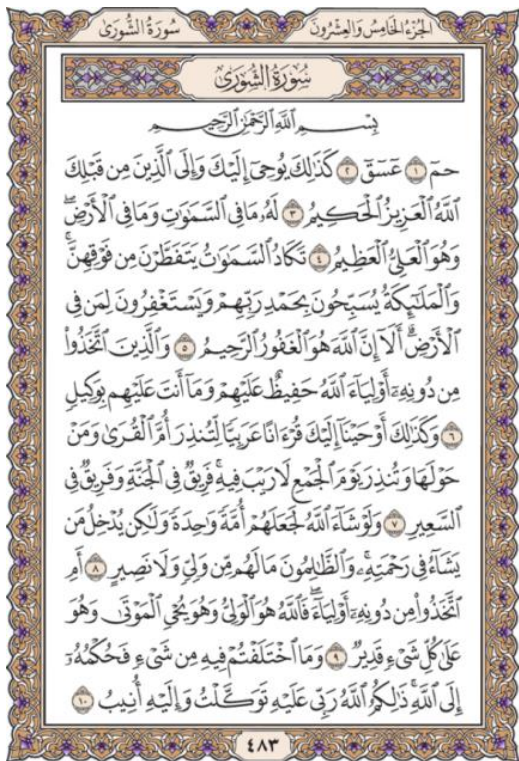 سُورَةُ الشُّورَىٰ
الجُزْءُ الخَامِسُ وَالعِشْرُونَ
سُورَةُ الشُّورَىٰ
بِسْمِ ٱللَّهِ ٱلرَّحْمَٰنِ ٱلرَّحِيمِ
حمٓ ١ عٓسٓقٓ ٢ كَذَٰلِكَ يُوحِيٓ إِلَيْكَ وَإِلَى ٱلَّذِينَ مِن قَبْلِكَ
ٱللَّهُ ٱلْعَزِيزُ ٱلْحَكِيمُ ٣ لَهُۥ مَا فِي ٱلسَّمَٰوَٰتِ وَمَا فِي ٱلْأَرْضِۖ
وَهُوَ ٱلْعَلِيُّ ٱلْعَظِيمُ ٤ تَكَادُ ٱلسَّمَٰوَٰتُ يَتَفَطَّرْنَ مِن فَوْقِهِنَّۚ
وَٱلْمَلَٰٓئِكَةُ يُسَبِّحُونَ بِحَمْدِ رَبِّهِمْ وَيَسْتَغْفِرُونَ لِمَن فِي
ٱلْأَرْضِۗ أَلَآ إِنَّ ٱللَّهَ هُوَ ٱلْغَفُورُ ٱلرَّحِيمُ ٥ وَٱلَّذِينَ ٱتَّخَذُوا۟
مِن دُونِهِۦٓ أَوْلِيَآءَ ٱللَّهُ حَفِيظٌ عَلَيْهِمْ وَمَآ أَنتَ عَلَيْهِم بِوَكِيلٍ
٦ وَكَذَٰلِكَ أَوْحَيْنَآ إِلَيْكَ قُرْءَانًا عَرَبِيًّا لِّتُنذِرَ أُمَّ ٱلْقُرَىٰ وَمَنْ
حَوْلَهَا وَتُنذِرَ يَوْمَ ٱلْجَمْعِ لَا رَيْبَ فِيهِۚ فَرِيقٌ فِي ٱلْجَنَّةِ وَفَرِيقٌ فِي
ٱلسَّعِيرِ ٧ وَلَوْ شَآءَ ٱللَّهُ لَجَعَلَهُمْ أُمَّةً وَٰحِدَةً وَلَٰكِن يُدْخِلُ مَن
يَشَآءُ فِي رَحْمَتِهِۦۚ وَٱلظَّٰلِمُونَ مَا لَهُم مِّن وَلِيٍّ وَلَا نَصِيرٍ ٨ أَمِ
ٱتَّخَذُوا۟ مِن دُونِهِۦٓ أَوْلِيَآءَۖ فَٱللَّهُ هُوَ ٱلْوَلِيُّ وَهُوَ يُحْيِ ٱلْمَوْتَىٰ وَهُوَ
عَلَىٰ كُلِّ شَيْءٍ قَدِيرٌ ٩ وَمَا ٱخْتَلَفْتُمْ فِيهِ مِن شَيْءٍ فَحُكْمُهُۥٓ
إِلَى ٱللَّهِۚ ذَٰلِكُمُ ٱللَّهُ رَبِّي عَلَيْهِ تَوَكَّلْتُ وَإِلَيْهِ أُنِيبُ ١٠
٤٨٣